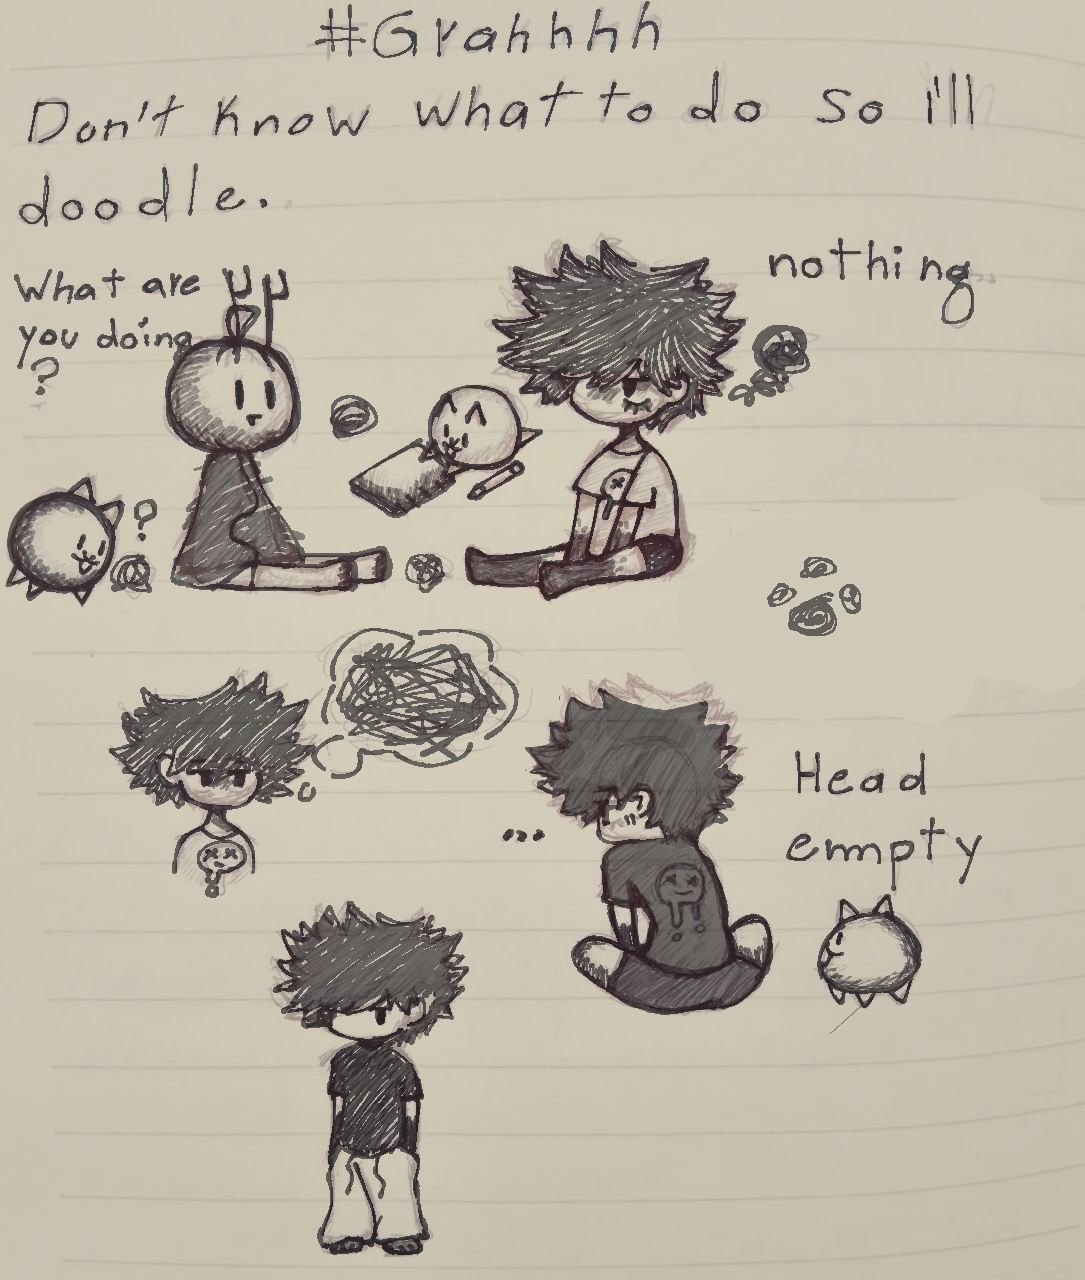 #Grahhhh
Don't know what to do so i'll
doodle.
What are
you doing
?
nothing
?
...
Head
empty